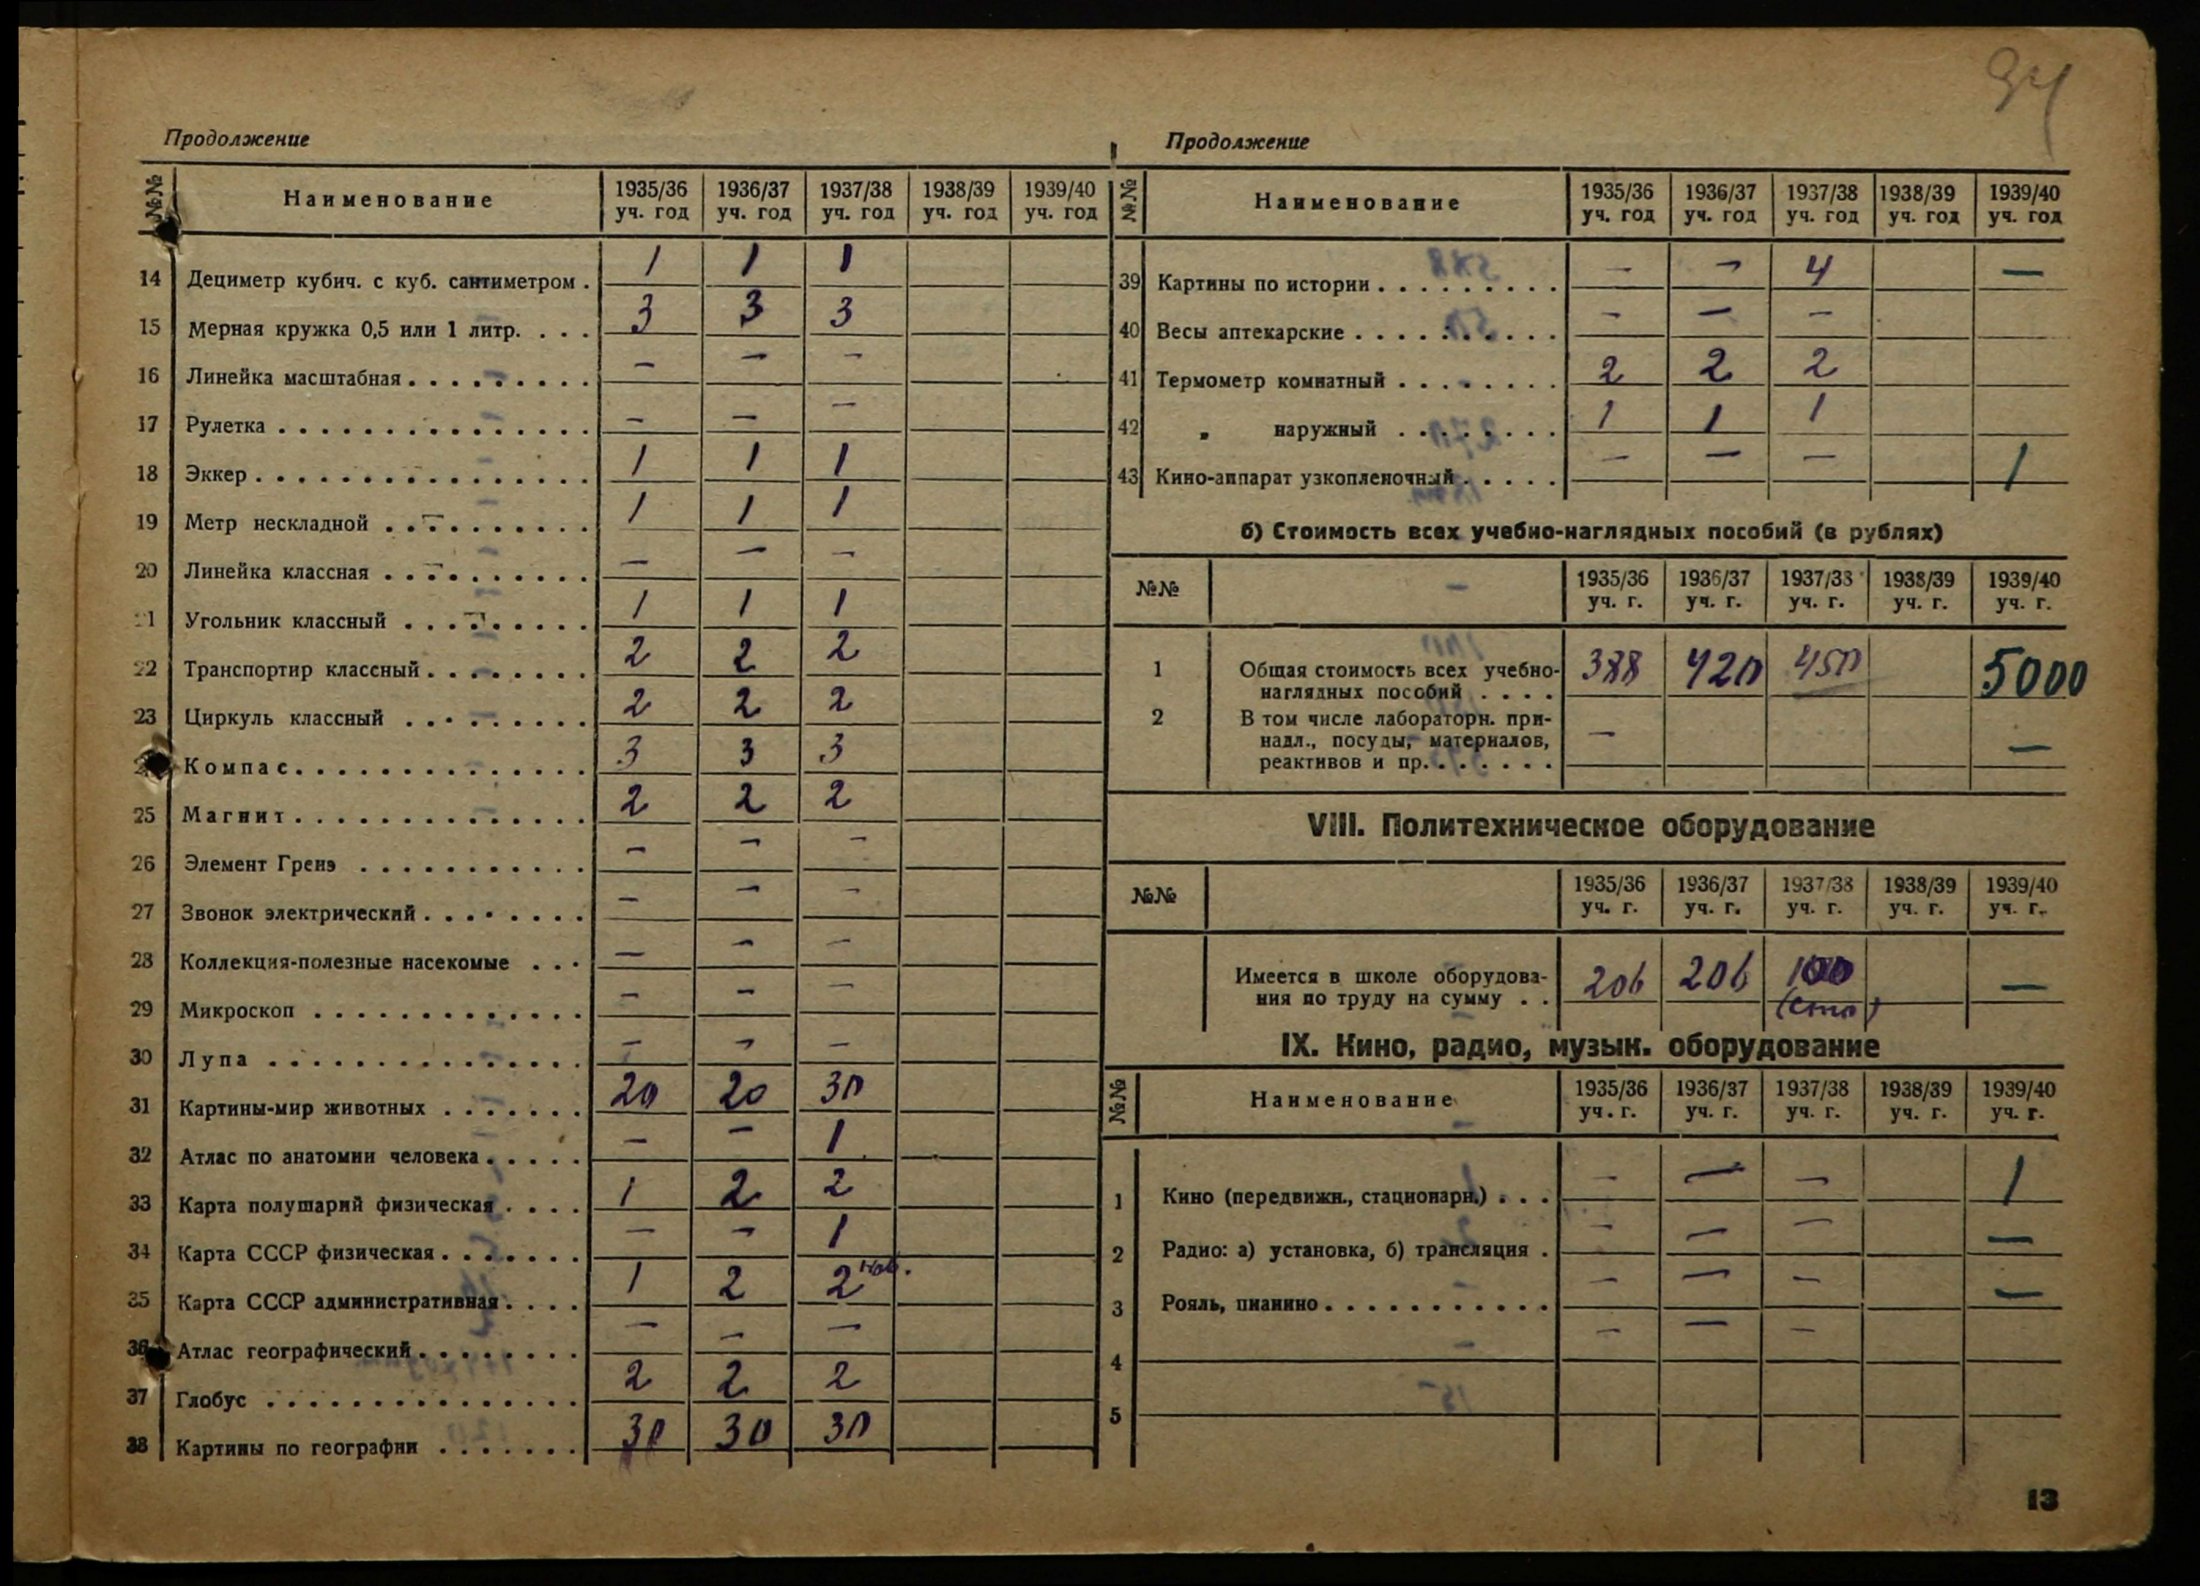 94
Продолжение
№№ Наименование 1935/36 уч. год 1936/37 уч. год 1937/38 уч. год 1938/39 уч. год 1939/40 уч. год
14 Дециметр кубич. с куб. сантиметром . 1 1 1
15 Мерная кружка 0,5 или 1 литр. . . . 3 3 3
16 Линейка масштабная . . . . . . . . . — — —
17 Рулетка . . . . . . . . . . . . . . . — — —
18 Эккер . . . . . . . . . . . . . . . . 1 1 1
19 Метр нескладной . . . . . . . . . . 1 1 1
20 Линейка классная . . . . . . . . . . — — —
21 Угольник классный . . . . . . . . . 1 1 1
22 Транспортир классный . . . . . . . . 2 2 2
23 Циркуль классный . . . . . . . . . 2 2 2
Компас . . . . . . . . . . . . . . 3 3 3
25 Магнит . . . . . . . . . . . . . . 2 2 2
26 Элемент Гренэ . . . . . . . . . . . — — —
27 Звонок электрический . . . . . . . . — — —
28 Коллекция-полезные насекомые . . . — — —
29 Микроскоп . . . . . . . . . . . . . — — —
30 Лупа . . . . . . . . . . . . . . . — — —
31 Картины-мир животных . . . . . . . 20 20 30
32 Атлас по анатомии человека . . . . . — — 1
33 Карта полушарий физическая . . . . 1 2 2
34 Карта СССР физическая . . . . . . . — — 1
35 Карта СССР административная . . . . 1 2 2
36 Атлас географический . . . . . . . . — — —
37 Глобус . . . . . . . . . . . . . . . 2 2 2
38 Картины по географии . . . . . . . 30 30 30
Продолжение
№№ Наименование 1935/36 уч. год 1936/37 уч. год 1937/38 уч. год 1938/39 уч. год 1939/40 уч. год
39 Картины по истории . . . . . . . . . — — 4 —
40 Весы аптекарские . . . . . . . . . . — — —
41 Термометр комнатный . . . . . . . . 2 2 2
42 „ наружный . . . . . . . . 1 1 1
43 Кино-аппарат узкопленочный . . . . . — — — 1
б) Стоимость всех учебно-наглядных пособий (в рублях)
№№ 1935/36 уч. г. 1936/37 уч. г. 1937/38 уч. г. 1938/39 уч. г. 1939/40 уч. г.
1 Общая стоимость всех учебно-
наглядных пособий . . . . 388 420 450 5000
2 В том числе лабораторн. при-
надл., посуды, материалов,
реактивов и пр. . . . . . . — —
VIII. Политехническое оборудование
№№ 1935/36 уч. г. 1936/37 уч. г. 1937/38 уч. г. 1938/39 уч. г. 1939/40 уч. г.
Имеется в школе оборудова-
ния по труду на сумму . . 206 206 100 —
(сто)
IX. Кино, радио, музык. оборудование
№№ Наименование 1935/36 уч. г. 1936/37 уч. г. 1937/38 уч. г. 1938/39 уч. г. 1939/40 уч. г.
1 Кино (передвижн., стационарн.) . . . — — — 1
2 Радио: а) установка, б) трансляция . — — — —
3 Рояль, пианино . . . . . . . . . . . — — — —
4 — — —
5
13